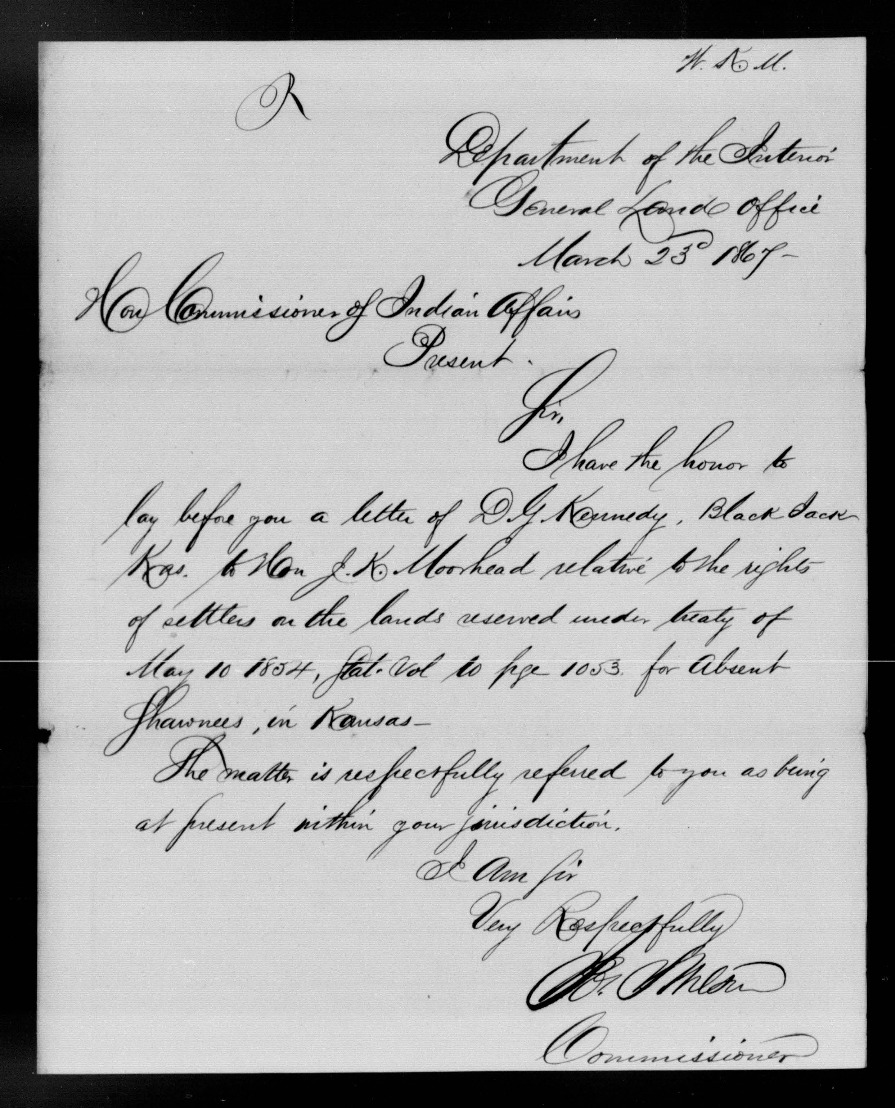 W. K. M.
R
Department of the Interior
General Land Office
March 23d 1867-
Hon Commissioner of Indian Affairs
Present.
Sir,
I have the honor to
lay before you a letter of D. G. Kennedy, Black Jack
Kas. to Hon J. K. Moorhead relative to the rights
of settlers on the lands reserved under treaty of
May 10 1854, Stat. Vol 10 pge 1053. for Absent
Shawnees, in Kansas-
The matter is respectfully referred to you as being
at present within your jurisdiction.
I Am Sir
Very Respectfully
Jos. S. Wilson
Commissioner